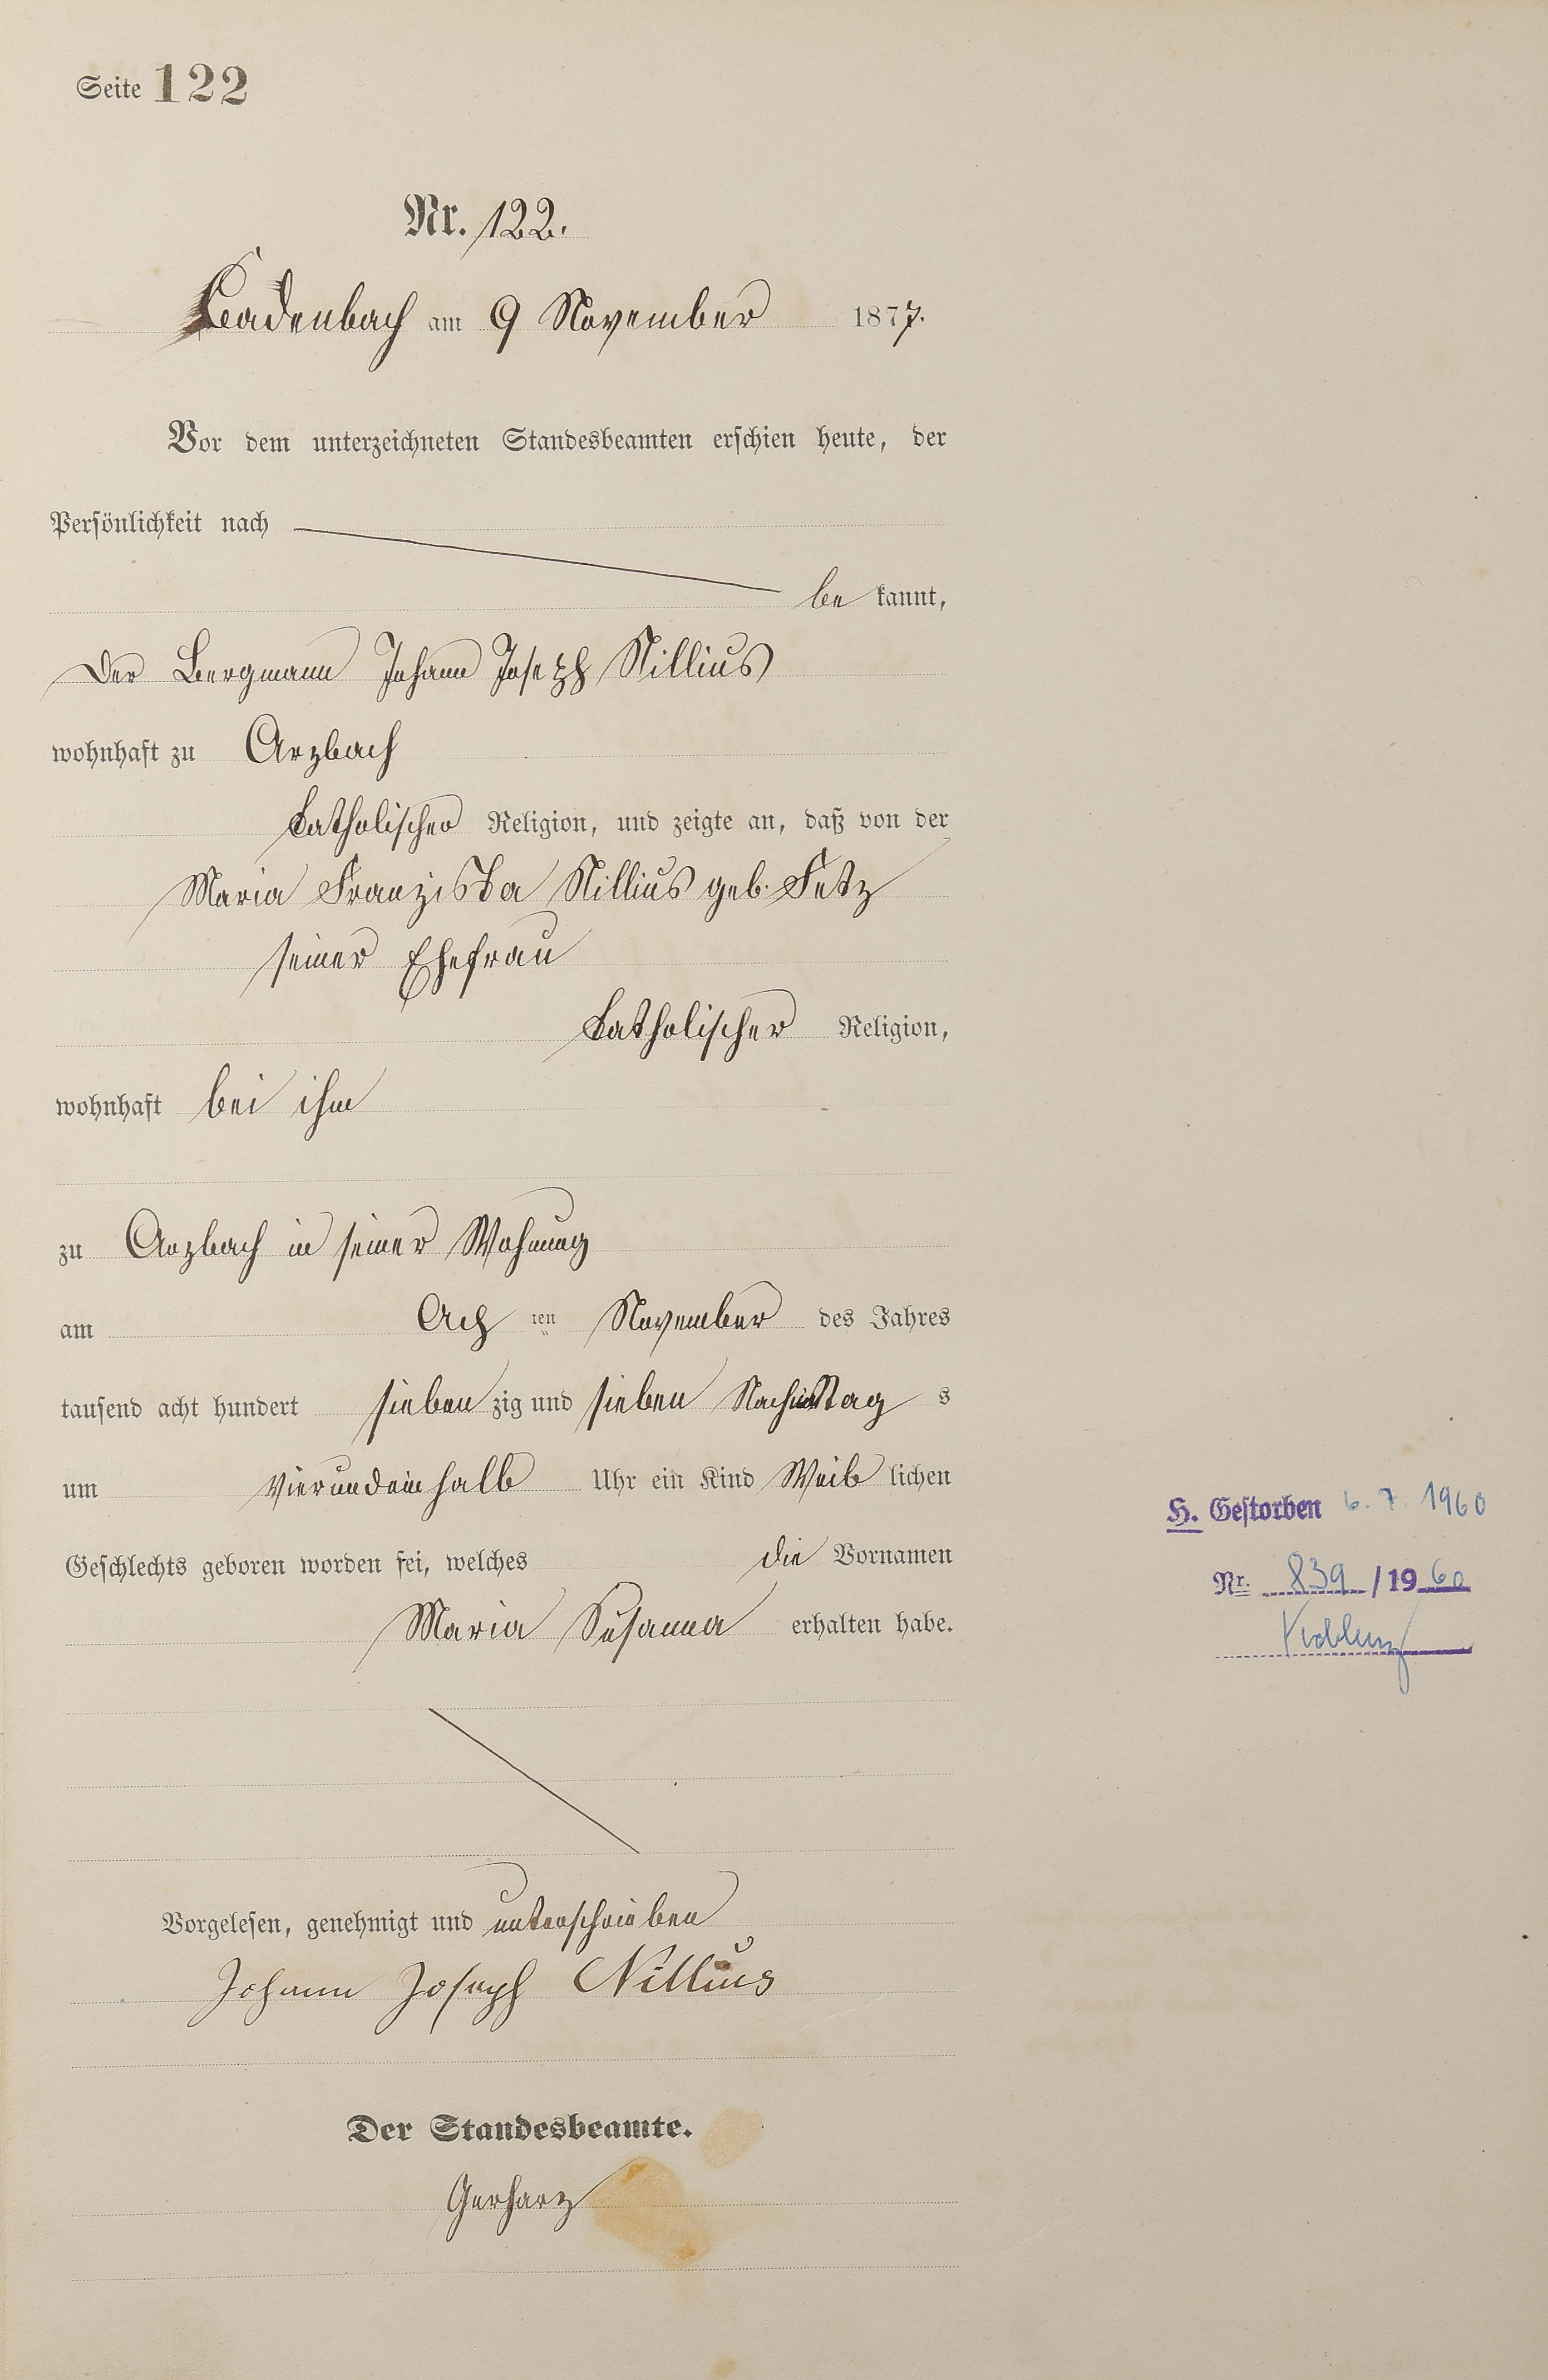 Seite 122
Nr. 122.
Kadenbach am 9 November 1877.
Vor dem unterzeichneten Standesbeamten erschien heute, der
Persönlichkeit nach
be kannt,
Der Bergmann Johann Joseph Nillius
wohnhaft zu Arzbach
katholischer Religion, und zeigte an, daß von der
Maria Franziska Nillius geb. Fetz
seiner Ehefrau
katholischer Religion,
wohnhaft bei ihm
zu Arzbach in seiner Wohnung
am Ach ten November des Jahres
tausend acht hundert sieben zig und sieben Nachmittag s
um vierundeinhalb Uhr ein Kind Weib lichen
Geschlechts geboren worden sei, welches die Vornamen
Maria Susanna erhalten habe.
H. Gestorben 6. 7. 1960
Nr. 839 / 19 60
Koblenz
Vorgelesen, genehmigt und unterschrieben
Johann Joseph Nillius
Der Standesbeamte.
Gerharz